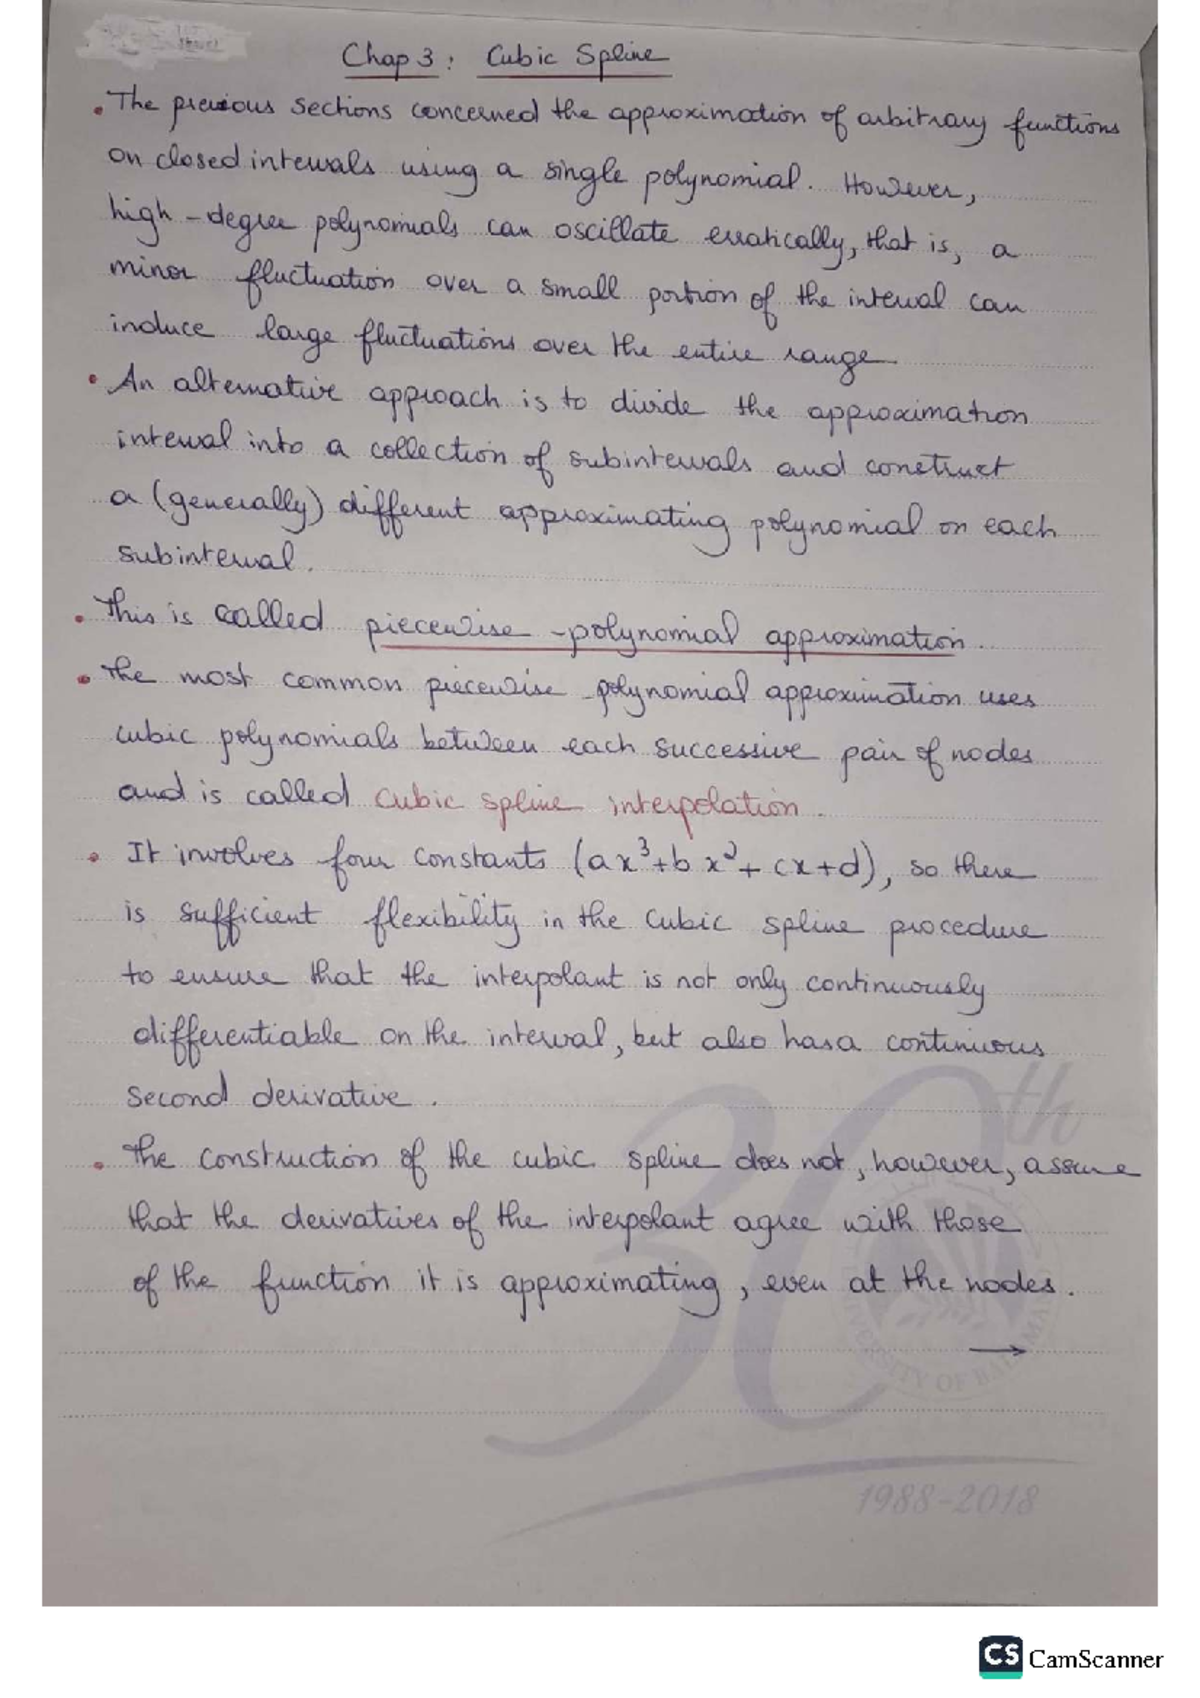 Chap 3 : Cubic Spline
• The previous sections concerned the approximation of arbitrary functions
on closed intervals using a single polynomial. However,
high-degree polynomials can oscillate erratically, that is, a
minor fluctuation over a small portion of the interval can
induce large fluctuations over the entire range.
• An alternative approach is to divide the approximation
interval into a collection of subintervals and construct
a (generally) different approximating polynomial on each
subinterval.
• This is called piecewise-polynomial approximation.
• The most common piecewise-polynomial approximation uses
cubic polynomials between each successive pair of nodes
and is called cubic spline interpolation.
• It involves four constants (ax³+bx²+cx+d), so there
is sufficient flexibility in the cubic spline procedure
to ensure that the interpolant is not only continuously
differentiable on the interval, but also has a continuous
second derivative.
• The construction of the cubic spline does not, however, assume
that the derivatives of the interpolant agree with those
of the function it is approximating, even at the nodes.
→
30th
1988-2018
CS CamScanner